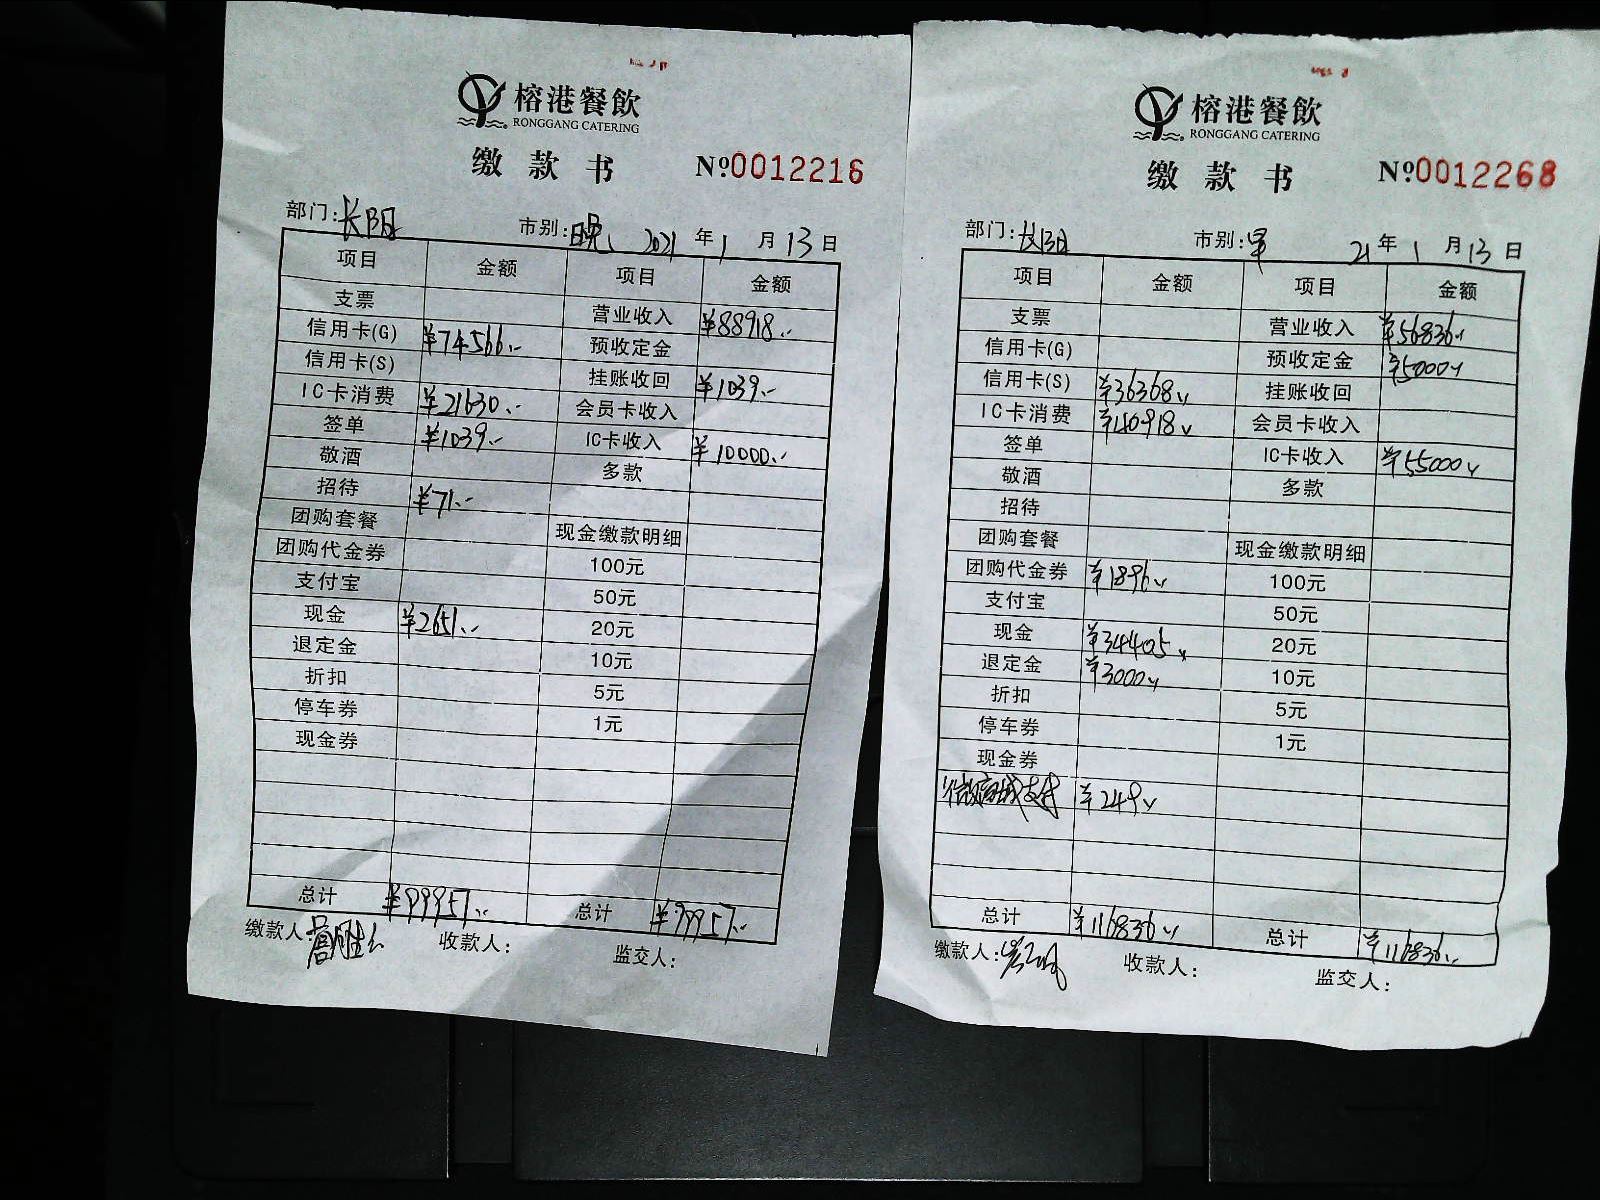 榕港餐飲
RONGGANG CATERING
缴款书 №0012216
部门:长阳 市别:晚 2021年1月13日
项目 金额 项目 金额
支票 营业收入 ¥88918.-
信用卡(G) ¥74566.- 预收定金
信用卡(S) 挂账收回 ¥1039.-
IC卡消费 ¥21630.- 会员卡收入
签单 ¥1039.- IC卡收入 ¥10000.-
敬酒 多款
招待 ¥71.-
团购套餐 现金缴款明细
团购代金券 100元
支付宝 50元
现金 ¥2651.- 20元
退定金 10元
折扣 5元
停车券 1元
现金券
总计 ¥99957.- 总计 ¥99957.-
缴款人: 收款人: 监交人:
榕港餐飲
RONGGANG CATERING
缴款书 №0012268
部门:长阳 市别:早 21年1月13日
项目 金额 项目 金额
支票 营业收入 ¥56836.-
信用卡(G) 预收定金 ¥5000.-
信用卡(S) ¥36368.- 挂账收回
IC卡消费 ¥40918.- 会员卡收入
签单 IC卡收入 ¥55000.-
敬酒 多款
招待
团购套餐 现金缴款明细
团购代金券 ¥1896.- 100元
支付宝 50元
现金 ¥34405.- 20元
退定金 ¥3000.- 10元
折扣 5元
停车券 1元
现金券
微商城支付 ¥249.-
总计 ¥116836.- 总计 ¥116836.-
缴款人: 收款人: 监交人: